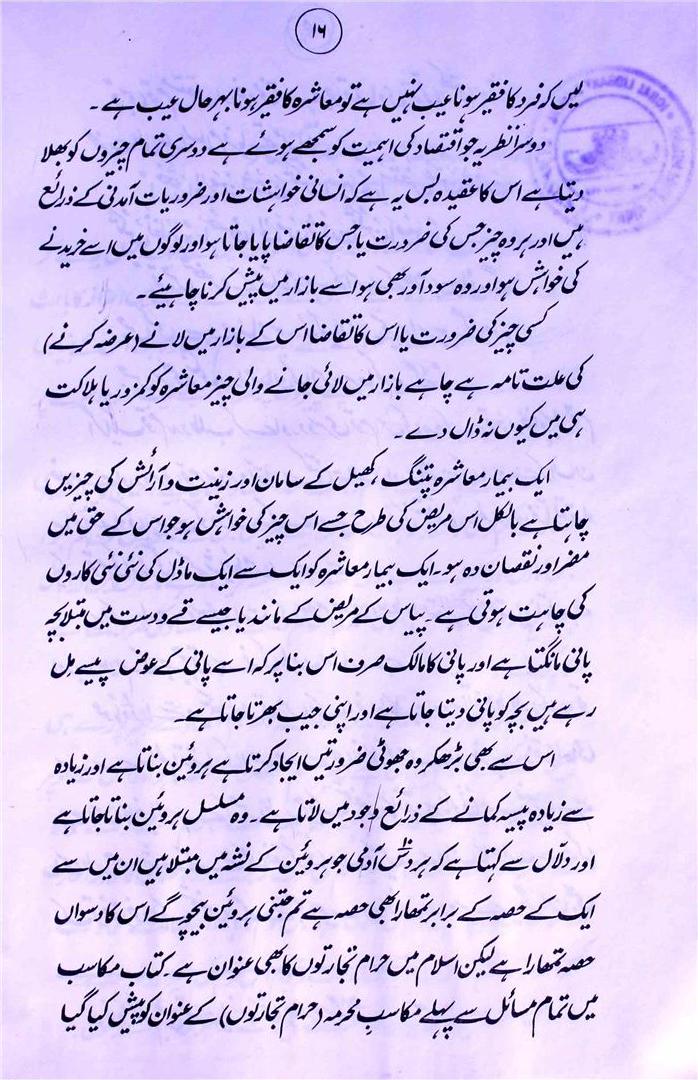 ۱۶
لیں کہ فرد کا فقیر ہونا عیب نہیں ہے تو معاشرہ کا فقیر ہونا بہر حال عیب ہے۔
دوسرا نظریہ جو اقتصاد کی اہمیت کو سمجھے ہوئے ہے دوسری تمام چیزوں کو بھلا
دیتا ہے اس کا عقیدہ بس یہ ہے کہ انسانی خواہشات اور ضروریات آمدنی کے ذرائع
ہیں اور ہر وہ چیز جس کی ضرورت یا جس کا تقاضا پایا جاتا ہو اور لوگوں میں اسے خریدنے
کی خواہش ہو اور وہ سود آور بھی ہو اسے بازار میں پیش کرنا چاہیئے۔
کسی چیز کی ضرورت یا اس کا تقاضا اس کے بازار میں لانے (عرضہ کرنے)
کی علت تامہ ہے چاہے بازار میں لائی جانے والی چیز معاشرہ کو کمزور یا ہلاکت
ہی میں کیوں نہ ڈال دے۔
ایک بیمار معاشرہ پتنگ، کھیل کے سامان اور زینت و آرائش کی چیزیں
چاہتا ہے بالکل اس مریض کی طرح جسے اس چیز کی خواہش ہو جو اس کے حق میں
مضر اور نقصان دہ ہو۔ ایک بیمار معاشرہ کو ایک سے ایک ماڈل کی نئی نئی کاروں
کی چاہت ہوتی ہے۔ پیاس کے مریض کے مانند یا جیسے قے و دست میں مبتلا بچہ
پانی مانگتا ہے اور پانی کا مالک صرف اس بنا پر کہ اسے پانی کے عوض پیسے مل
رہے ہیں بچہ کو پانی دیتا جاتا ہے اور اپنی جیب بھرتا جاتا ہے۔
اس سے بھی بڑھکر وہ جھوٹی ضرورتیں ایجاد کرتا ہے ہروئین بناتا ہے اور زیادہ
سے زیادہ پیسہ کمانے کے ذرائع وجود میں لاتا ہے۔ وہ مسلسل ہروئین بناتا جاتا ہے
اور دلّال سے کہتا ہے کہ ہر دس۱۰ آدمی جو ہروئین کے نشہ میں مبتلا ہیں ان میں سے
ایک کے حصہ کے برابر تمھارا بھی حصہ ہے تم جتنی ہروئین بیچو گے اس کا دسواں
حصہ تمھارا ہے لیکن اسلام میں حرام تجارتوں کا بھی عنوان ہے۔ کتاب مکاسب
میں تمام مسائل سے پہلے مکاسبِ محرمہ (حرام تجارتوں) کے عنوان کو پیش کیا گیا